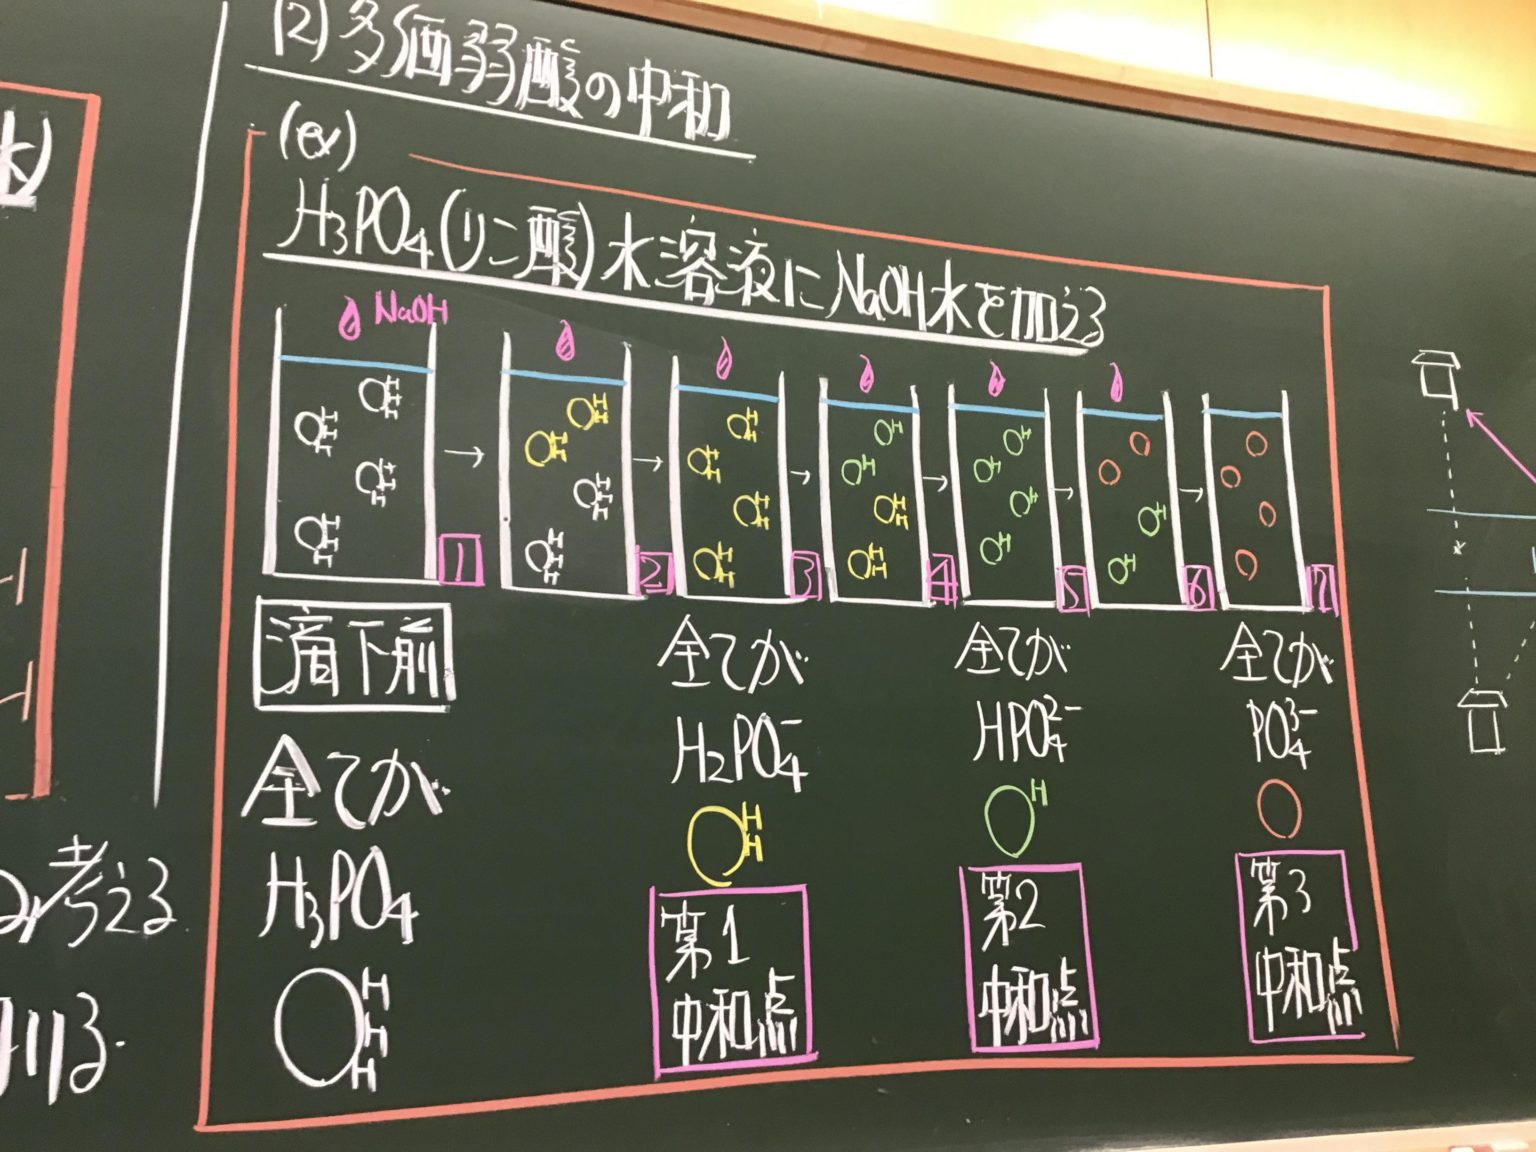 水)
(2)多価弱酸の中和
(ex)
H₃PO₄(リン酸)水溶液にNaOH水を加える
NaOH
H H H
H H H
H H H
H H H
1
H H
H H
H H H
H H H
2
H H
H H
H H
H H
3
H
H
H H
H H
4
H
H
H
H
5
H
H
6
7
滴下前
全てが
H₃PO₄
H
H
H
全てが
H₂PO₄⁻
H
H
第1
中和点
全てが
HPO₄²⁻
H
第2
中和点
全てが
PO₄³⁻
第3
中和点
考える